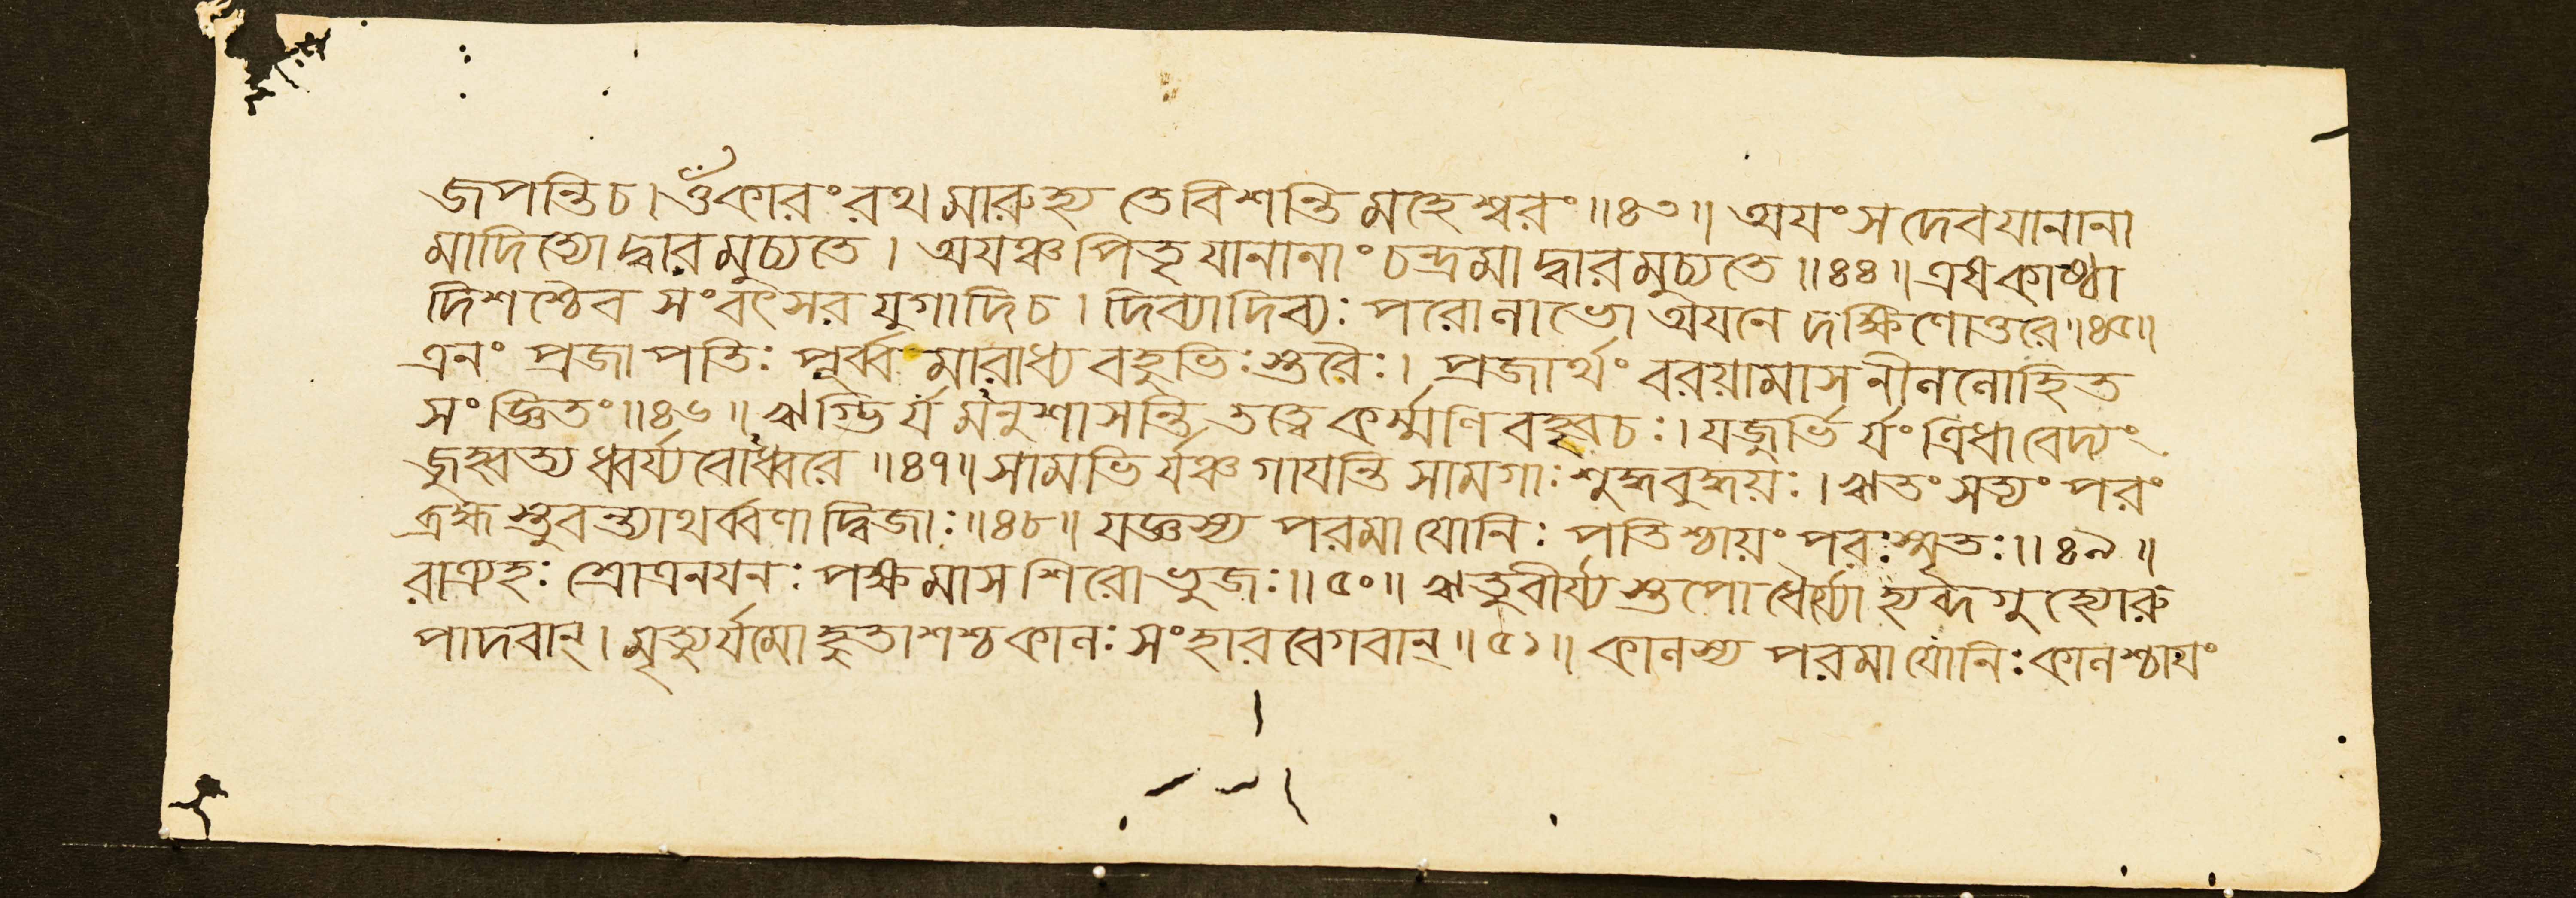 জপন্তিচ।ওঁকারংরথমারুহ্য তেবিশন্তিমহেশ্বরং॥৪৩॥ অয়ংসদেবযানানা
মাদিত্যোদ্বারমুচ্যতে। অয়ঞ্চপিতৃযানানাংচন্দ্রমাদ্বারমুচ্যতে॥৪৪॥এষকাষ্ঠা
দিশশ্চৈব সংবৎসরযুগাদিচ। দিব্যাদিব্যঃ পরোলাভো অয়নে দক্ষিণোত্তরে॥৪৫॥
এনং প্রজাপতিঃ পূর্ব্বমারাধ্যবহুভিঃস্তবৈঃ। প্রজার্থং বরয়ামাসনীললোহিত
সংজ্ঞিতং॥৪৬॥ঋগ্ভির্যমনুশাসন্তি তত্ত্বেকর্ম্মণিবহ্বৃচঃ।যজুর্ভির্যংত্রিধাবেদ্যং
জুহ্বত্যধ্বর্য্যবোধ্বরে॥৪৭॥সামভির্যঞ্চগায়ন্তিসামগাঃশুদ্ধবুদ্ধয়ঃ।ঋতংসত্যংপরং
ব্রহ্মস্তুবন্ত্যাথর্ব্বণাদ্বিজাঃ॥৪৮॥যজ্ঞস্য পরমাযোনিঃ পতিশ্চায়ংপরঃস্মৃতঃ॥৪৯॥
রাত্র্যহঃ শ্রোত্রনয়নঃপক্ষমাসশিরোভুজঃ॥৫০॥ঋতুবীর্য্যস্তপোধৈর্য্যোহ্যব্দগুহ্যোরু
পাদবান্।মৃত্যুর্যমোহুতাশশ্চকালঃসংহারবেগবান্॥৫১॥কালস্য পরমাযোনিঃকালশ্চায়ং